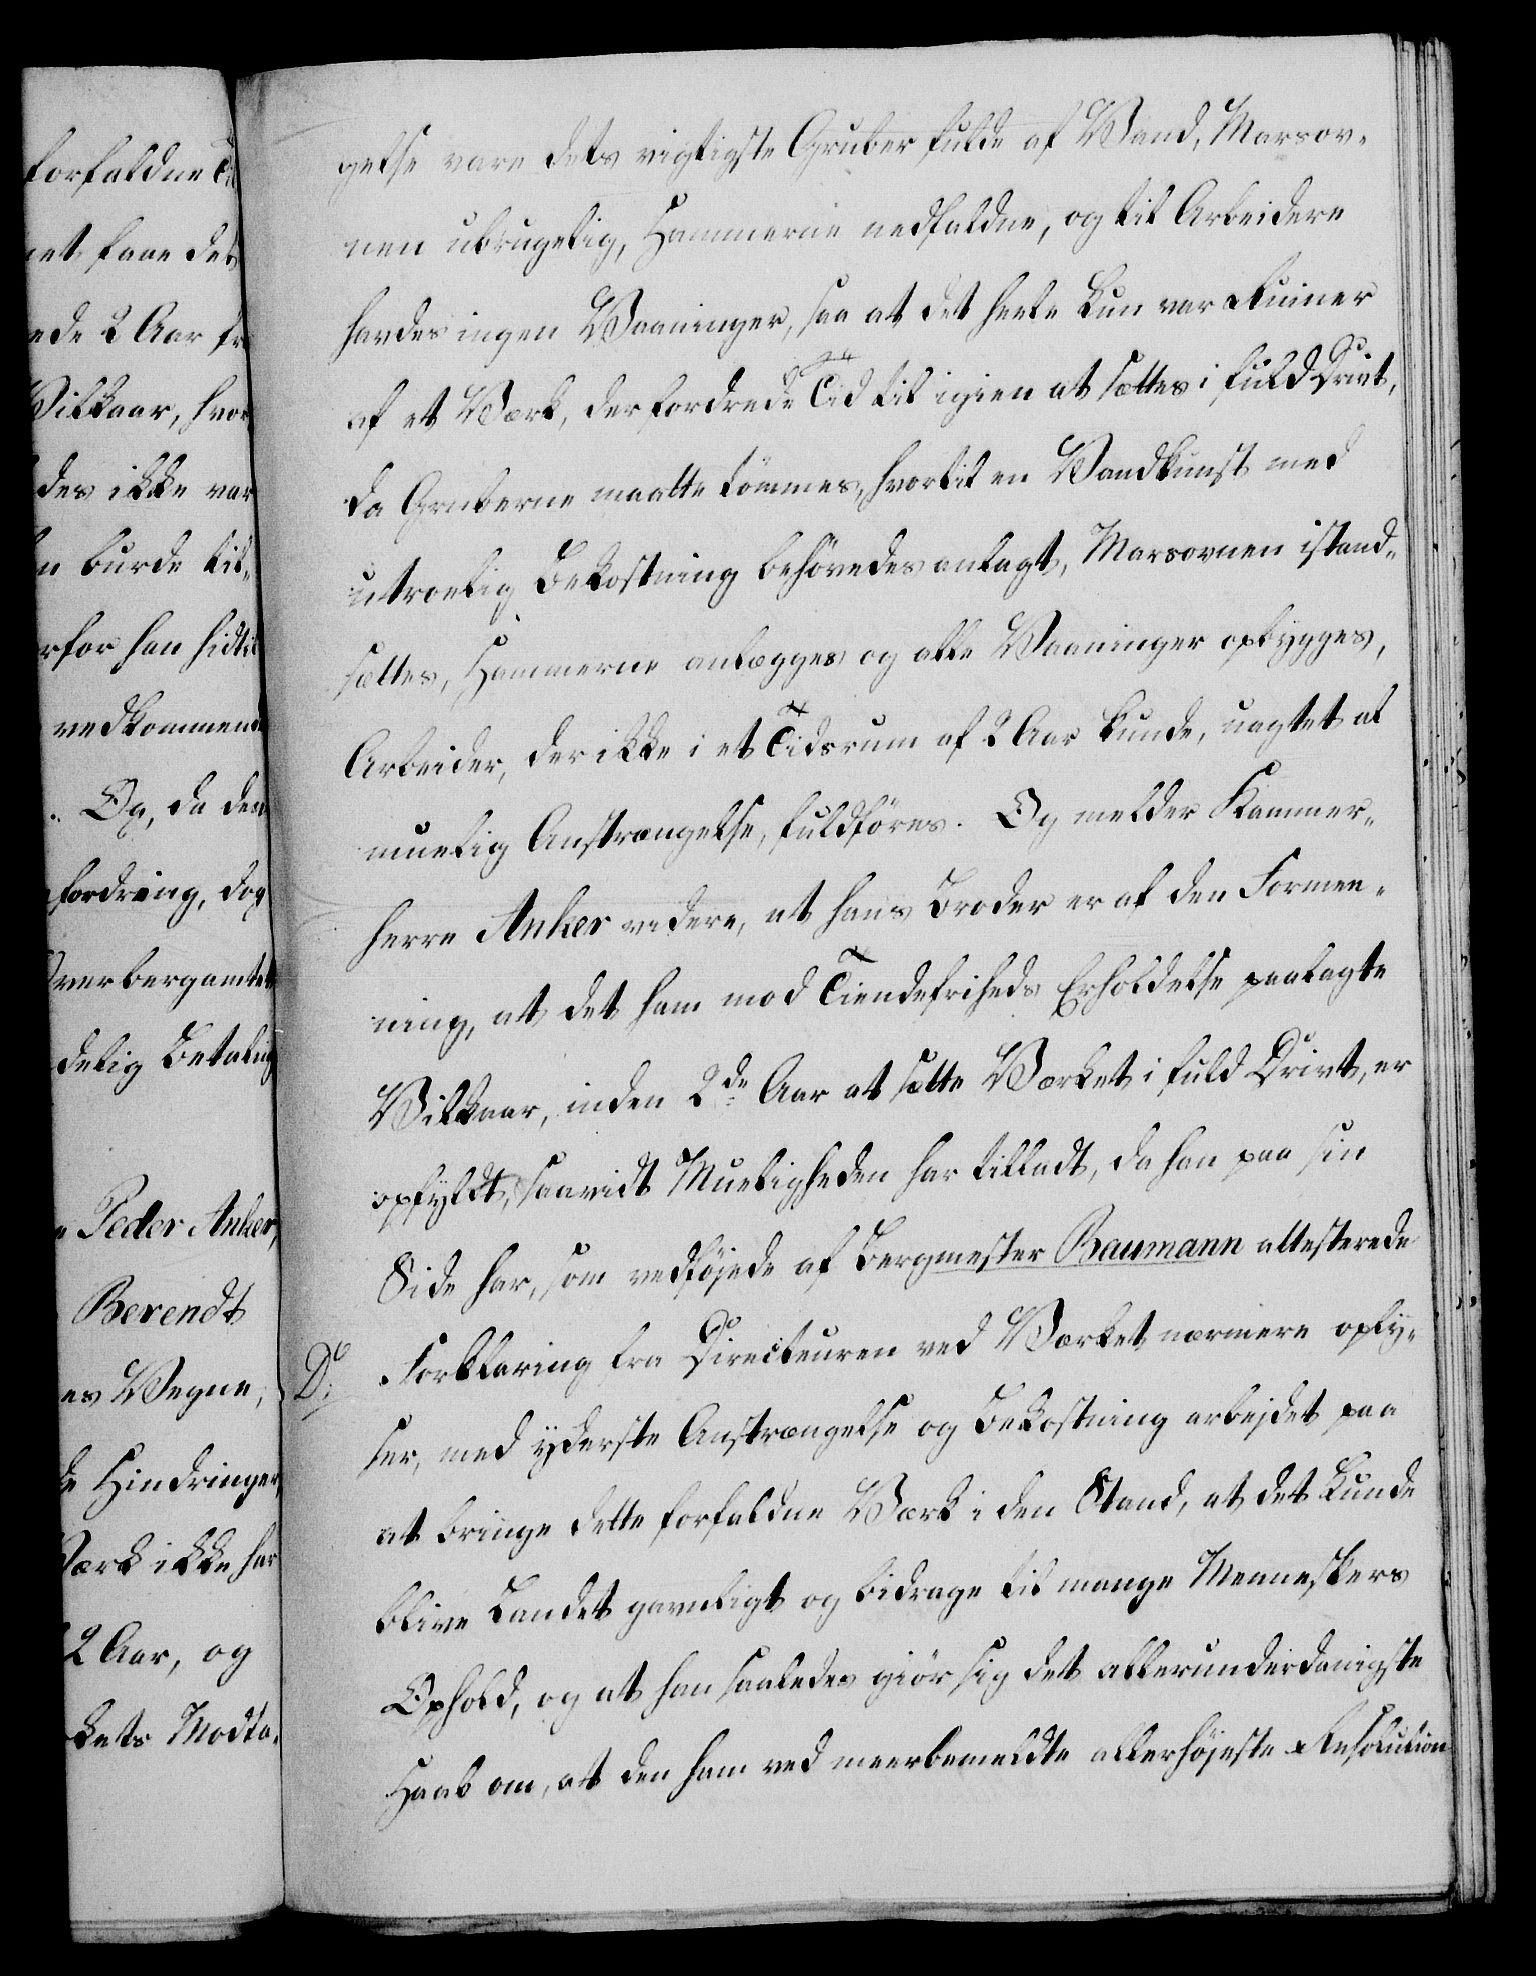 forfaldne Ti
et faae det
ede 2 Aar fr
Vilkaar, hvor
des ikke var
n burde til-
rfor han hidtil
vedkommende
. Og, da den
fordring, dog
Overbergamtet
delig Betaling
Peder Anker,
Berendt
es Vegne,
de Hindringer,
Værk ikke har
2 Aar, og
kets Modta-
gelse vare dets vigtigste Gruber fulde af Vand, Marsov-
nen ubrugelig, Hammerne nedfaldne, og til Arbeidere
havdes ingen Vaaninger, saa at det heele kun var Ruiner
af et Værk, der fordrede Tid til igien at sættes i fuld Drivt,
da Gruberne maatte tömmes, hvortil en Vandkunst med
utroelig Bekostning behövedes anlagt, Marsovnen istand-
sættes, Hammerne anlægges og alle Vaaninger opbygges,
Arbeider, der ikke i et Tidsrum af 2 Aar kunde, uagtet al
muelig Anstrængelse, fuldföres. Og melder Kammer-
herre Anker videre, at hans Broder er af den Formee-
ning, at det ham mod Tiendefriheds Erholdelse paalagte
Vilkaar, inden 2de Aar at sætte Værket i fuld Drivt, er
opfyldt, saavidt Mueligheden har tilladt, da han paa sin
Side har, som vedföjede af Bergmester Baumann attesterede
D: Forklaring fra Directeuren ved Værket nærmere oply-
ser, med yderste Anstrængelse og Bekostning arbejdet paa
at bringe dette forfaldne Værk i den Stand, at det kunde
blive Landet gavnligt og bidrage til mange Menneskers
Ophold, og at han saaledes giör sig det allerunderdanigste
Haab om, at den ham ved meerbemeldte allerhöjeste Resolution